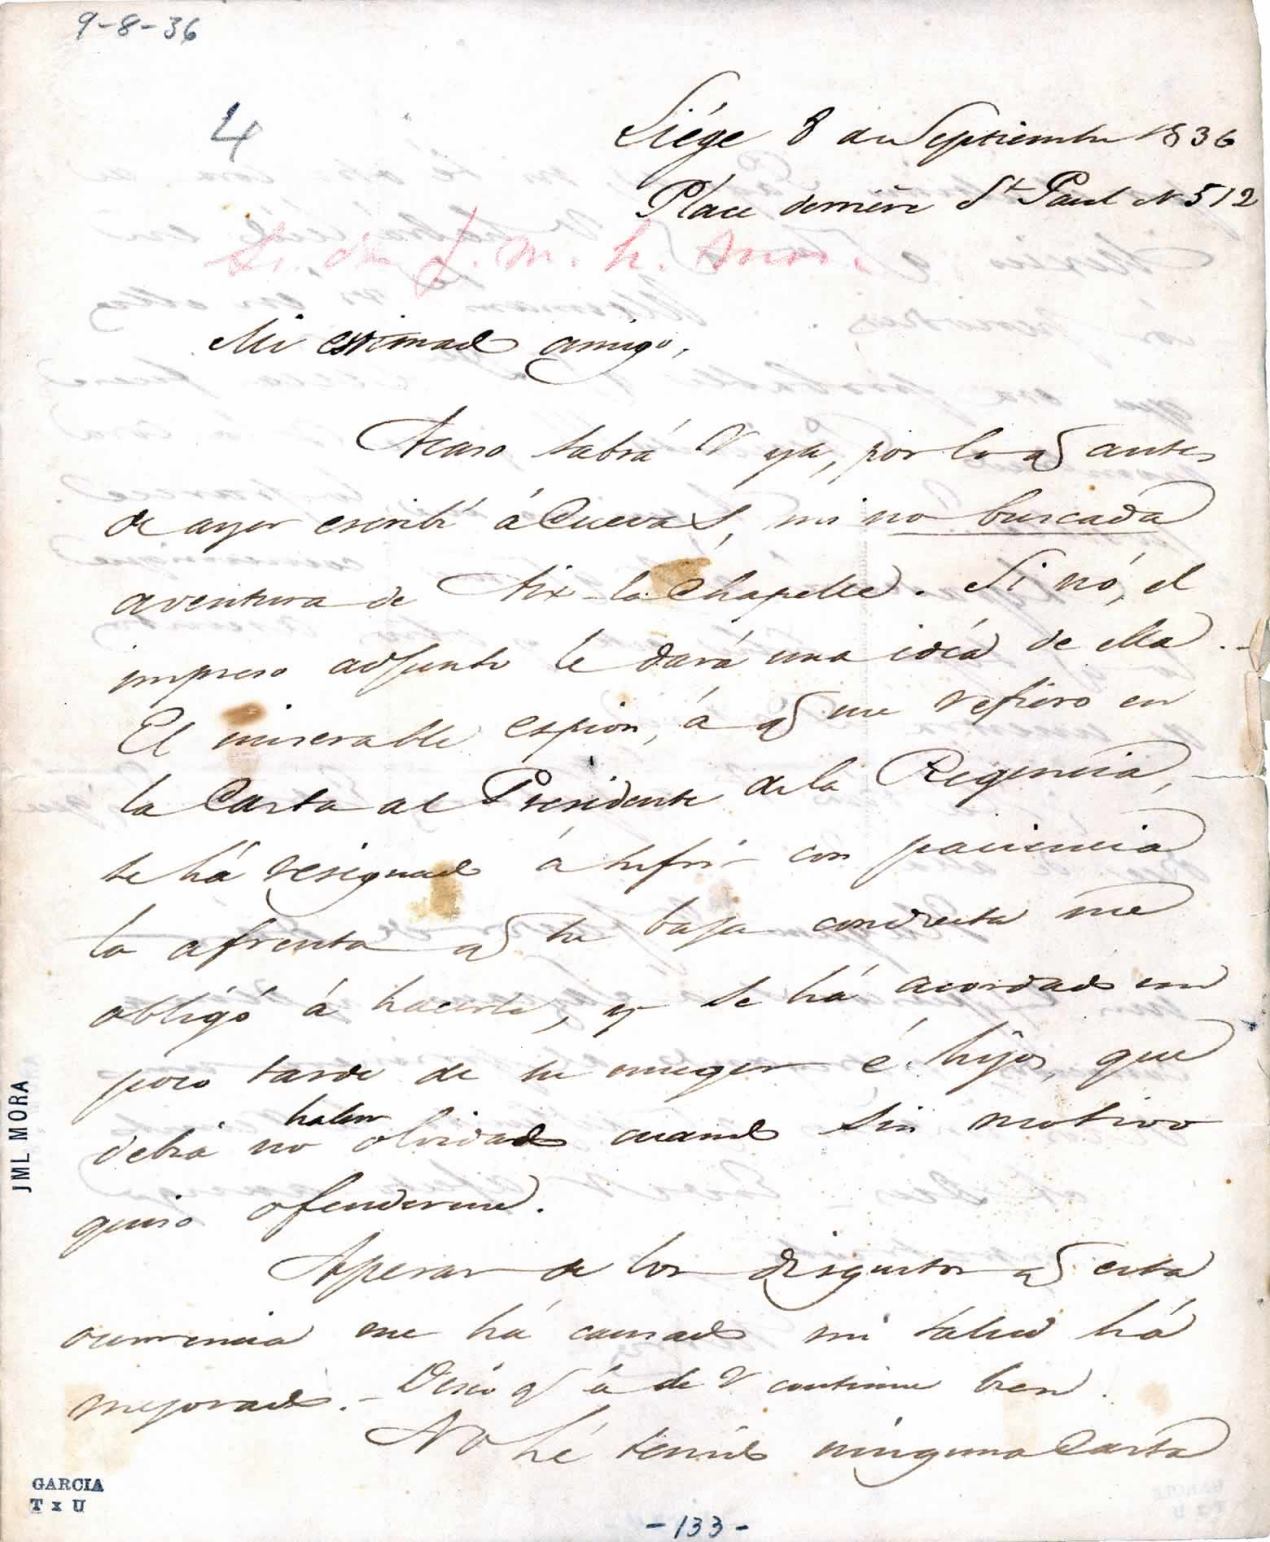 9-8-36
4
Liége 8 de Septiembre 1836
Place derrière St Paul N 512
Sr. dn J. M. L. Mora.
Mi estimado amigo,
Acaso sabrá V ya, por lo q antes
de ayer escribí á Cuevas, mi no buscada
aventura de Aix-la Chapelle. Si nó, el
impreso adjunto le dará una idéa de ella.
El miserable espion, á q me refiero en
la Carta al Presidente de la Regencia,
se há resignado á sufrir con paciencia
la afrenta q su baja conducta me
obligó á hacerle, y se há acordado un
poco tarde de su muger é hijos, que
haber
debía no olvidado cuando sin motivo
quiso ofenderme.
Apesar de los disgustos q esta
ocurrencia me há causado mi salud há
mejorado. - Deséo q á de V continue bien.
No hé tenido ninguna Carta
JML MORA
GARCIA
T x U
-133-